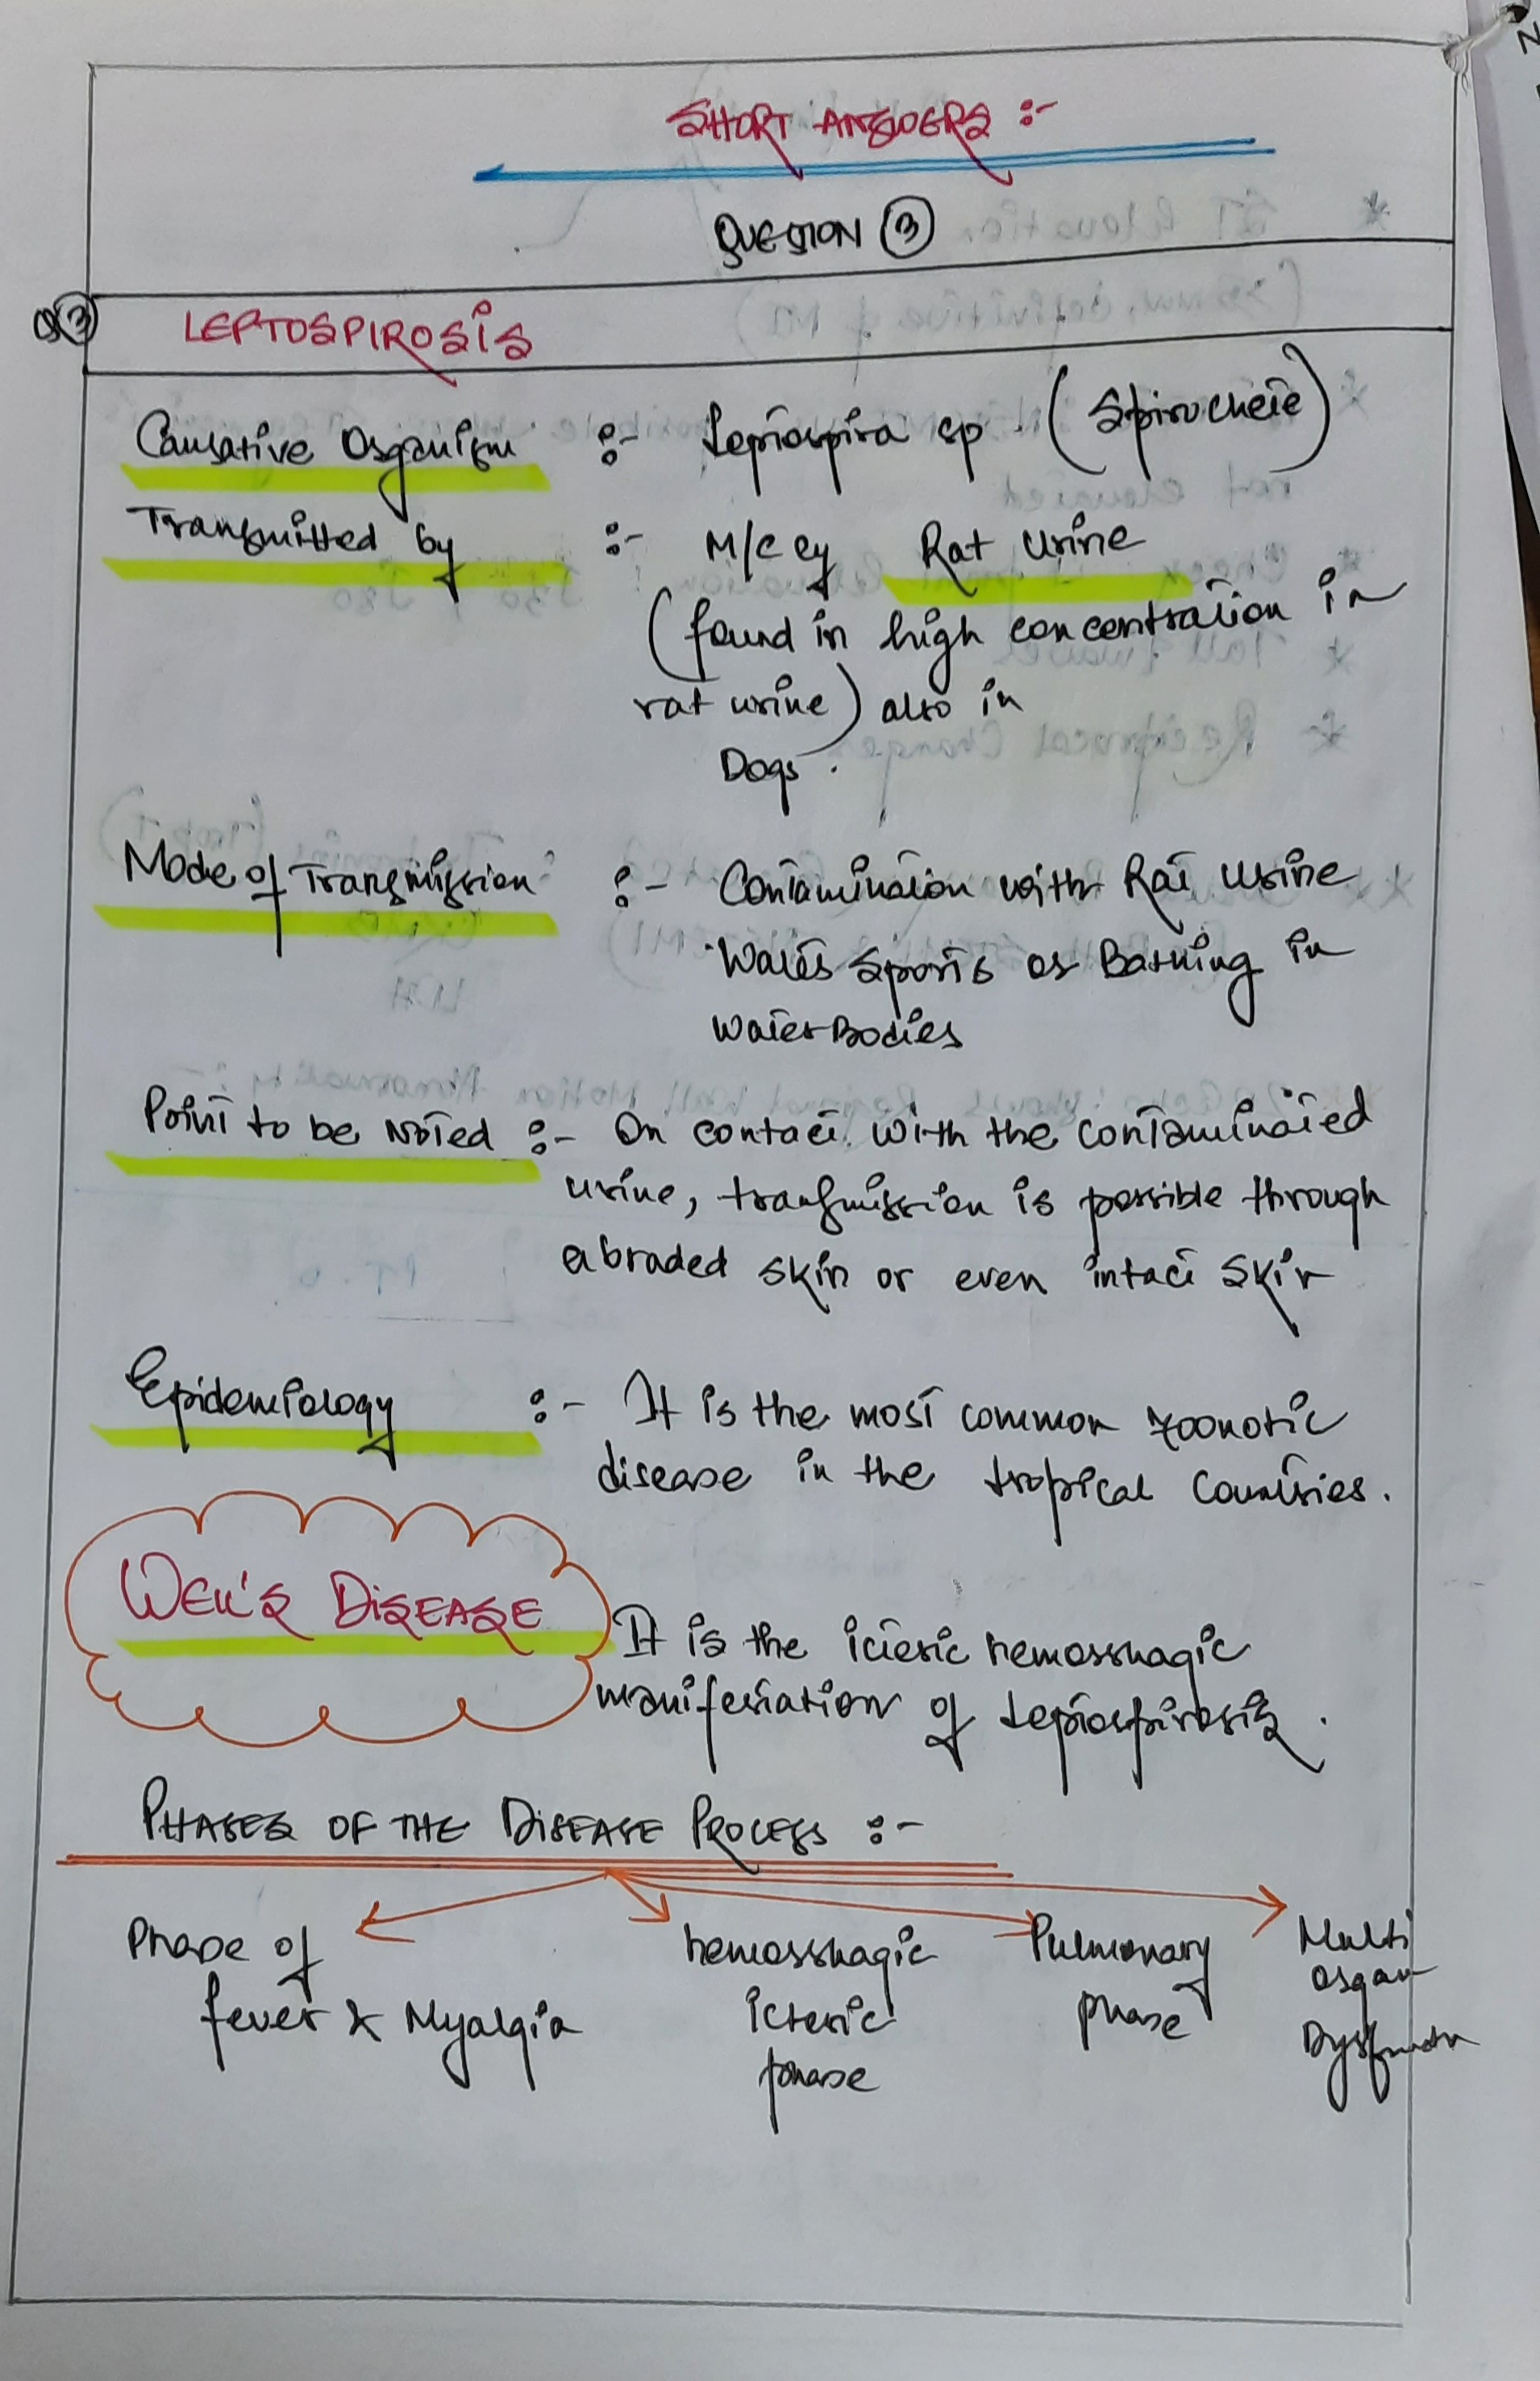 SHORT ANSWERS :-
QUESTION 3
Q3 LEPTOSPIROSIS
Causative Organism :- Leptospira sp (Spirochete)
Transmitted by :- M/C by Rat Urine
(found in high concentration in
rat urine) also in
Dogs.
Mode of Transmission :- Contamination with Rat Urine
Water Sports or Bathing in
Water Bodies
Point to be Noted :- On contact with the contaminated
urine, transmission is possible through
abraded skin or even intact skin
Epidemiology :- It is the most common zoonotic
disease in the tropical Countries.
WEIL'S DISEASE It is the icteric hemorrhagic
manifestation of Leptospirosis.
PHASES OF THE DISEASE PROCESS :-
Phase of fever & Myalgia
hemorrhagic icteric phase
Pulmonary phase
Multi organ